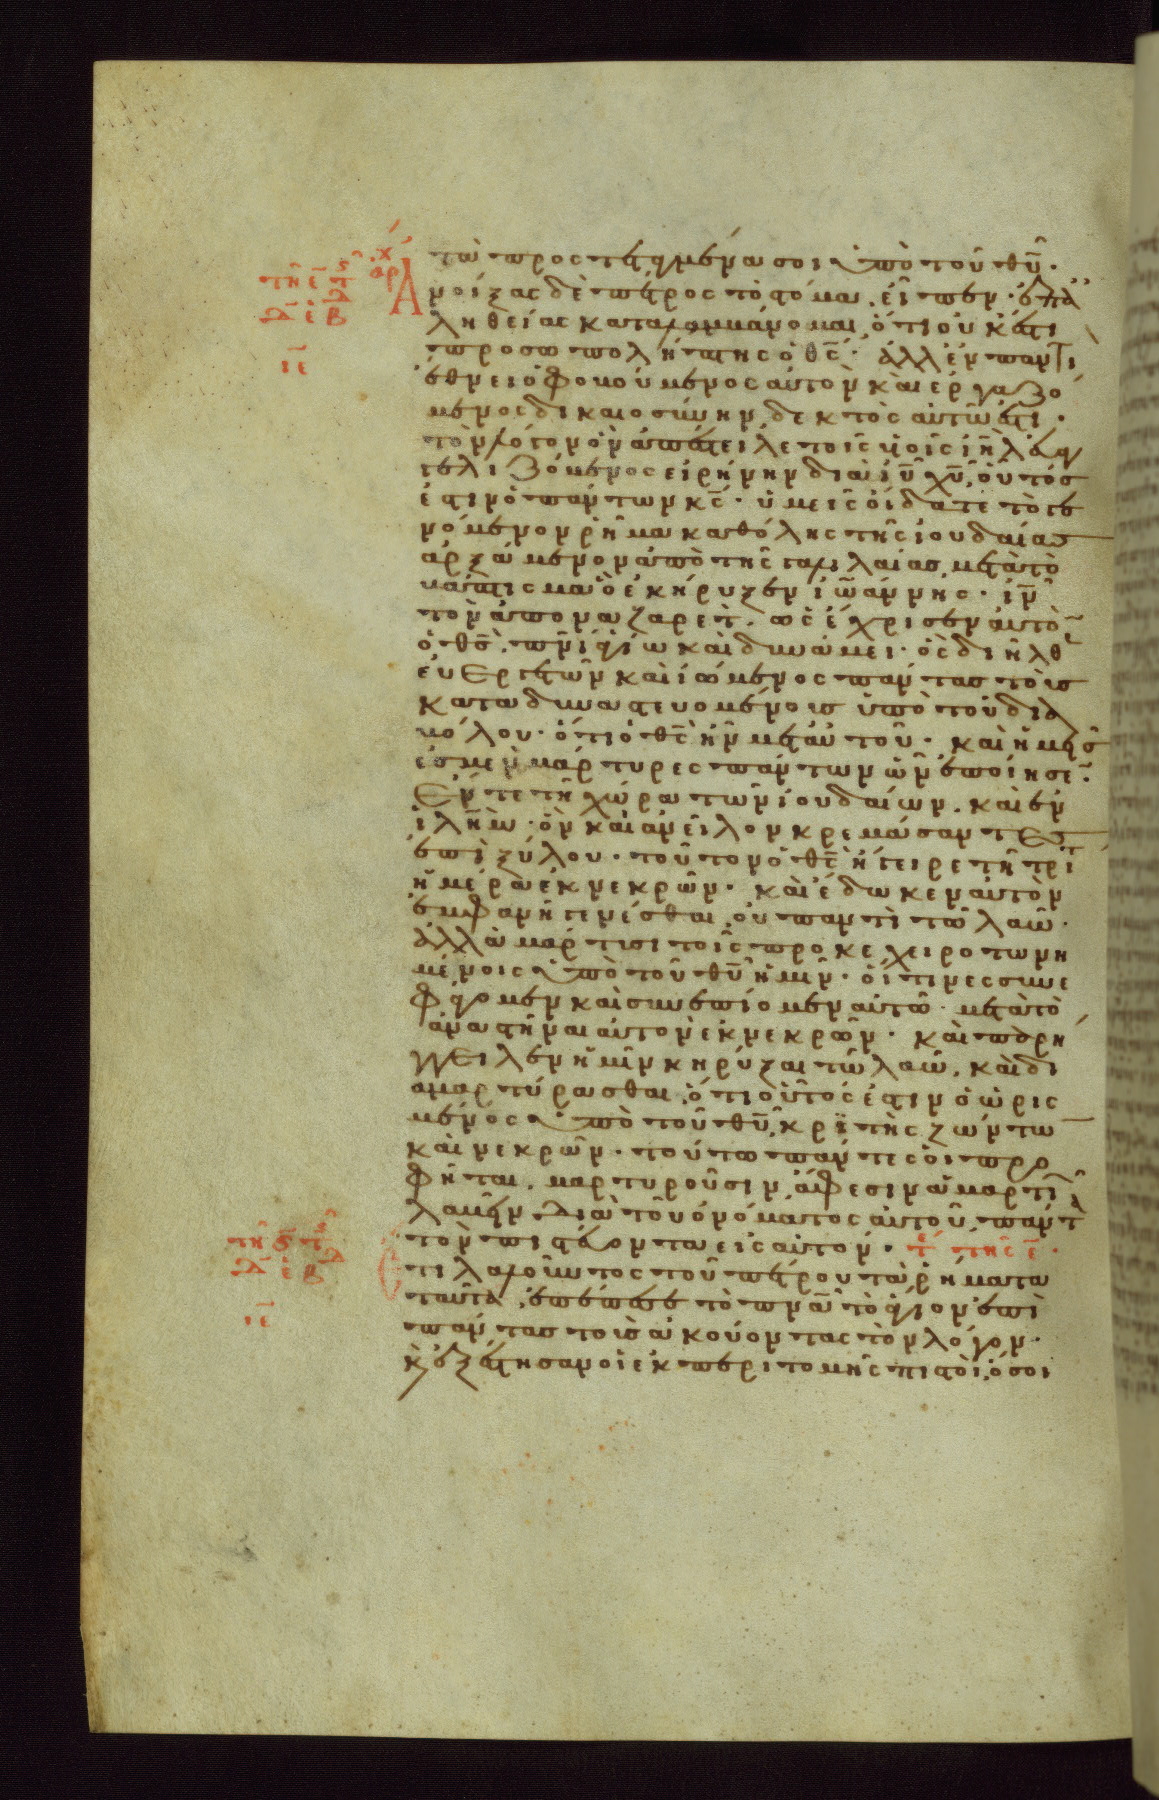 τὰ προστεταγμένα σοι ὑπὸ τοῦ θῡ·
Ἀνοίξας δὲ πέτρος τὸ στόμα, εἶπεν· ἐπ ἀ
ληθείας καταλαμβάνομαι, ὅτι οὐκ ἔστι
προσωπολήπτης ὁ θς̄· ἀλλ ἐν παντὶ
ἔθνει ὁ φοβούμενος αὐτὸν καὶ ἐργαζό
μενος δικαιοσύνην, δεκτὸς αὐτῶ ἐστι·
τὸν λόγον ὃν ἀπέστειλε τοῖς υἱοῖς ιη̄λ εὐαγ
γελιζόμενος εἰρήνην διὰ ιῡ χῡ, οὗτός
ἐστιν ὁ πάντων κς̄· ὑμεῖς οἴδατε τὸ γε
νόμενον ῥῆμα καθόλης τῆς ἰουδαίας
ἀρξάμενον ἀπὸ τῆς γαλιλαίας, μετὰ τὸ
βάπτισμα ὃ ἐκήρυξεν ἰωάννης· ιν̄
τὸν ἀπο ναζαρέτ. ὡς ἔχρισεν αὐτὸ
ὁ θς̄, πν̄ι ἁγίω καὶ δυνάμει· ὃς διῆλθ
εὐεργετῶν καὶ ἰώμενος πάντας τοὺς
καταδυναστευομένους ὑπὸ τοῦ δια
βόλου· ὅτι ὁ θς̄ ἦν μετ αὐτοῦ· καὶ ἡμεῖς
ἐσμὲν μάρτυρες πάντων ὧν ἐποίησε
Ἔν τε τῆ χώρα τῶν ἰουδαίων, καὶ ἐν
ιλη̄μ· ὃν καὶ ἀνεῖλον κρεμάσαντες
ἐπὶ ξύλου· τοῦτον ὁ θς̄ ἤγειρε τῆ τρί
ἡμέρα ἐκ νεκρῶν· καὶ ἔδωκεν αὐτὸν
ἐμφανῆ γενέσθαι, οὐ παντὶ τῶ λαῶ·
ἀλλὰ μάρτυσι τοῖς προκεχειροτωνη
μένοις ὑπὸ τοῦ θῡ ἡμῖν· οἵτινες συνε
φάγομεν καὶ συνεπίομεν αὐτῶ· μετὰ τὸ
ἀναστῆναι αὐτὸν ἐκ νεκρῶν· καὶ παρή
γγειλεν ἡμῖν κηρύξαι τῶ λαῶ, καὶ δι
αμαρτύρασθαι, ὅτι οὗτός ἐστιν ὁ ὡρισ
μένος ὑπὸ τοῦ θῡ, κρϊτὴς ζώντω
καὶ νεκρῶν· τούτω πάντες οἱ προ
φῆται, μαρτυροῦσιν, ἄφεσιν ἁμαρτι
λαβεῖν διὰ τοῦ ὀνόματος αὐτοῦ, πάντα
τὸν πιστεύοντα εἰς αὐτόν· τε της ε̄·
Ἔτι λαλοῦντος τοῦ πέτρου τὰ ῥήματα
ταῦτα, ἐπέπεσε τὸ πνᾱ τὸ ἅγιον ἐπὶ
πάντας τοὺς ἀκούοντας τὸν λόγον·
κ ἐξέστησαν οἱ ἐκ περιτομῆς πιστοὶ, ὅσοι